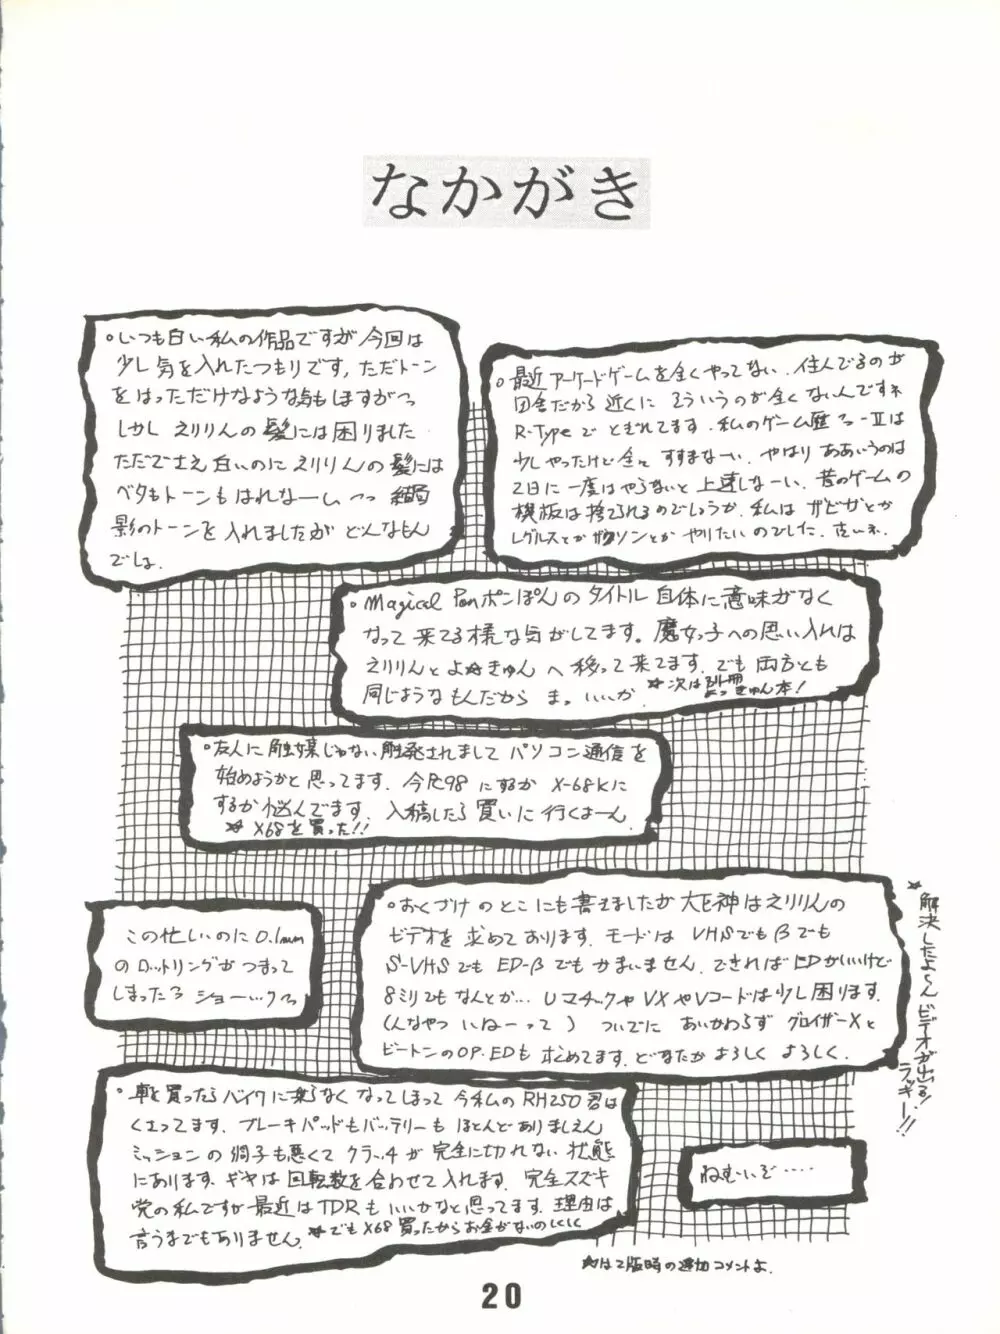 なかがき
・いつも白い私の作品ですが今回は
少し気を入れたつもりです。ただトーン
をはっただけなような気もしますがっ
しかし えりりんの髪には困りました
ただでさえ白いのにえりりんの髪には
ベタもトーンもはれなーしっっ 結局
影のトーンを入れましたが どんなもん
でしょ
・最近アーケードゲームを全くやってない。住んでるのが
田舎だから近くに そういうのが全くないんですネ
R-Typeで とぎれてます。私のゲーム歴っ-Ⅱは
少しやったけど全っ すすまなーい。やはり ああいうのは
2日に一度はやらないと上達しなーい。昔のゲームの
模板は捨てられるのでしょうか。私は ザビガとか
レグルスとか ザクソンとか やりたいのでした。古いネ。
・Magical Ponポンぽんのタイトル自体に意味がなく
なって来てる様な気がしてます。魔女っ子への思い入れは
えりりんとよ☆きゅんへ移って来てます。でも両方とも
同じようなもんだから ま。いいか
☆次は別冊よっきゅん本!
・友人に触媒じゃない触発されまして パソコン通信を
始めようかと思ってます。今尺98にするか X-68Kに
するか悩んでます。入稿したら買いに行くよーん。
☆X68を買った!!
・おくづけのとこにも書きましたが大E神はえりりんの
ビデオを求めております。モードは VHSでもβでも
S-VHSでもED-βでもかまいません。できればEDがいいけど
8ミリでもなんとか… UマチックやVXやVコードは少し困ります。
(んなやつ いねーって) ついでに あいかわらず グロイザーXと
ビートンのOP.EDも求めてます。どなたか よろしく よろしく.
☆解決したよ~ん ビデオが出る! ラッキー!!
この忙しいのに0.1mm
のロットリングがつまって
しまったっ ショーックっ
・車を買ったらバイクに乗らなくなってしまって今私のRH250君は
くさってます。ブレーキパッドもバッテリーもほとんどありましぇん
ミッションの調子も悪くてクラッチが完全に切れない状態
にあります。ギヤは回転数を合わせて入れます。完全スズキ
党の私ですが最近はTDRもいいかなと思ってます。理由は
言うまでもありません。☆でもX68買ったからお金がないのしくしく
ねむいぞ……
☆は2版時の追加コメントよ.
20